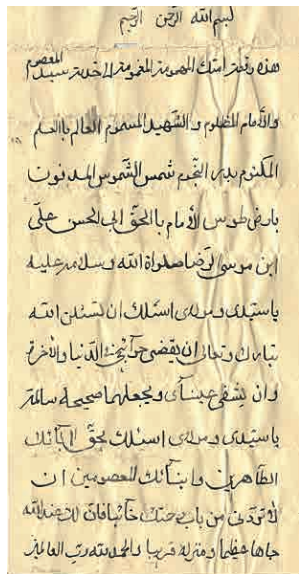 بسم الله الرحمن الرحیم
هذه رقعة امتك المهمومة المغمومة الی خدمة سیدی المعصوم
والأمام المظلوم والشهید المسموم العالم باالعلم
المکتوم بدر النجوم شمس الشموس المدفون
بارض طوس الأمام باالحق ابی الحسن علی
ابن موسی الرضا صلواة الله وسلامه علیه
یا سیدی ومولای اسئلك ان تسئلن الله
تبارك وتعالی ان یقضی حوآئجی فی الدنیا والأخرة
وان یشفی عینای ویجعلهما صحیحة سالمة
یا سیدی ومولای اسئلك بحق ابآئك
الطاهرین وابنآئك المعصومین ان
لا تردنی من باب رحمتك خآئبا فان لك عند الله
جاها عظیما ومنزلة قریبا والحمد لله رب العالمین